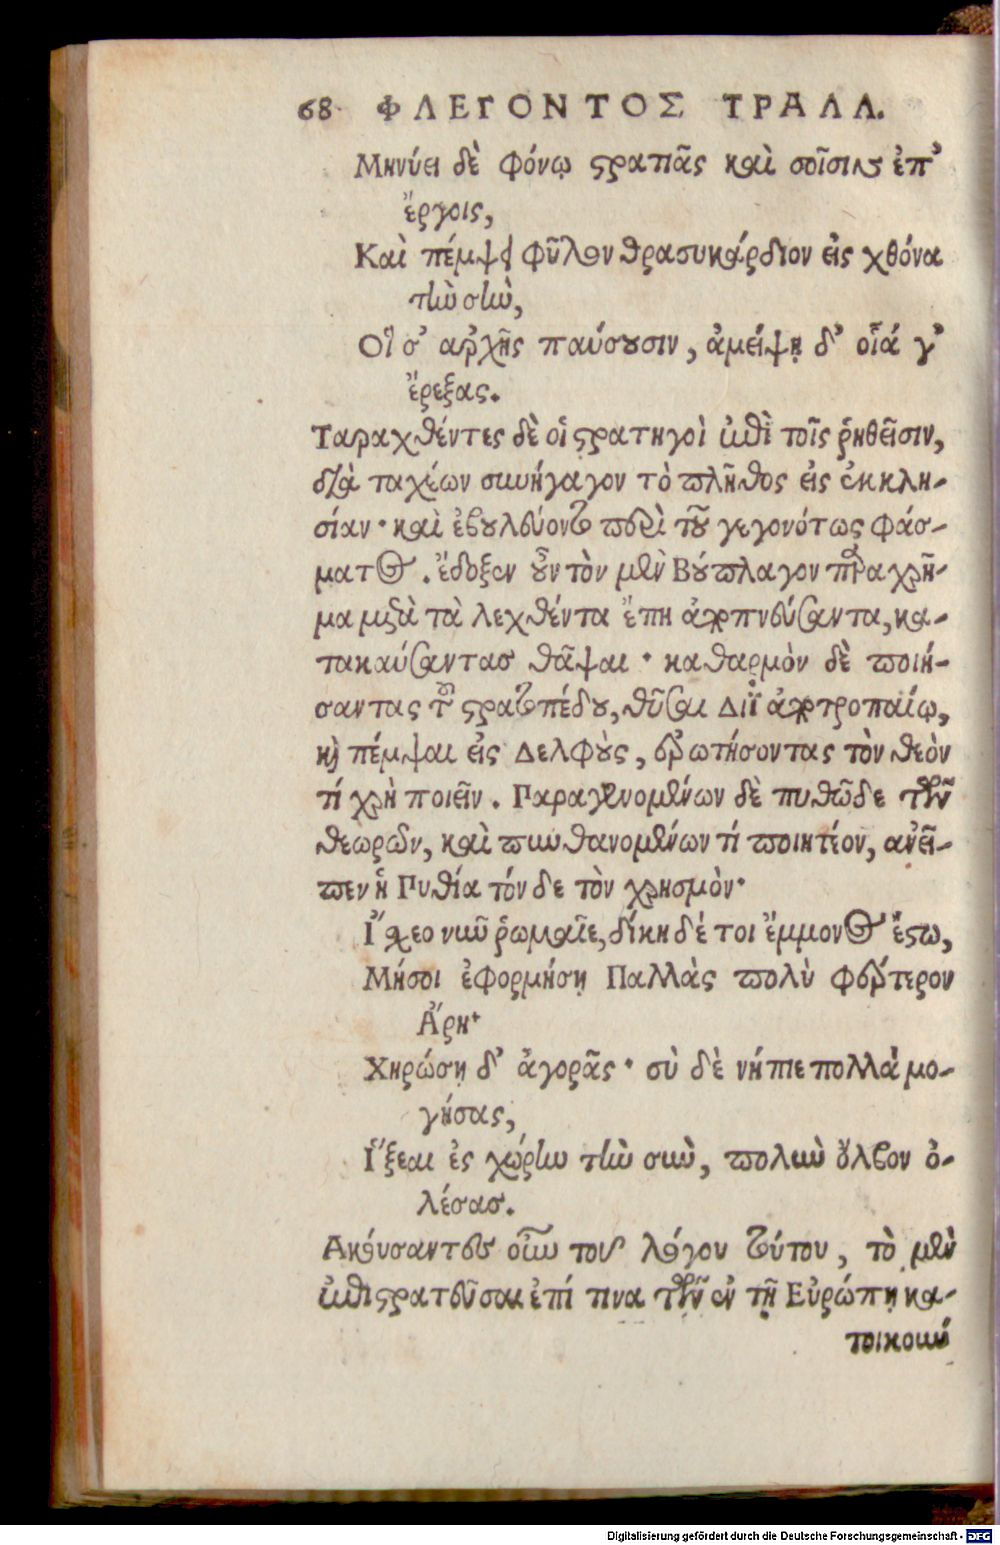 68 ΦΛΕΓΟΝΤΟΣ ΤΡΑΛΛ.
Μηνύει δὲ φόνῳ στρατιᾶς καὶ σοῖσιν ἐπ᾽
ἔργοις,
Καὶ πέμψει φῦλον θρασυκάρδιον εἰς χθόνα
τὴν σὴν,
Οἵ σ᾽ ἀρχῆς παύσουσιν, ἀμείψῃ δ᾽ οἷά γ᾽
ἔρεξας.
Ταραχθέντες δὲ οἱ στρατηγοὶ ἐπὶ τοῖς ῥηθεῖσιν,
διὰ ταχέων συνήγαγον τὸ πλῆθος εἰς ἐκκλη-
σίαν· καὶ ἐβουλεύοντο περὶ τοῦ γεγονότως φάσ-
ματος. ἔδοξεν οὖν τὸν μὲν Βούπλαγον παραχρῆ-
μα μετὰ τὰ λεχθέντα ἔπη ἀποπνεύσαντα, κα-
τακαύσαντας θᾶψαι· καθαρμὸν δὲ ποιή-
σαντας τοῦ στρατοπέδου, θῦσαι Διῒ ἀποτροπαίῳ,
καὶ πέμψαι εἰς Δελφοὺς, ἐρωτήσοντας τὸν θεὸν
τί χρὴ ποιεῖν. Παραγενομένων δὲ πυθῶδε τῶν
θεωρῶν, καὶ πυνθανομένων τί ποιητέον, ανεῖ-
πεν ἡ Πυθία τόνδε τὸν χρησμὸν·
Ἴσχεο νῦν ῥωμαῖε, δίκη δέ τοι ἔμμονος ἔστω,
Μήσοι ἐφορμήσῃ Παλλὰς πολὺ φέρτερον
Ἄρη·
Χηρώσῃ δ᾽ ἀγορᾶς· σὺ δὲ νήπιε πολλὰ μο-
γήσας,
Ἵξεαι ἐς χώρην τὴν σὴν, πολὺν ὄλβον ὀ-
λέσας.
Ακούσαντες οὖν τοῦ λόγου τούτου, τὸ μὲν
ἐπιστρατεῦσαι ἐπί τινα τῶν ἐν τῇ Εὐρώπῃ κα-
τοικούν
Digitalisierung gefördert durch die Deutsche Forschungsgemeinschaft - DFG